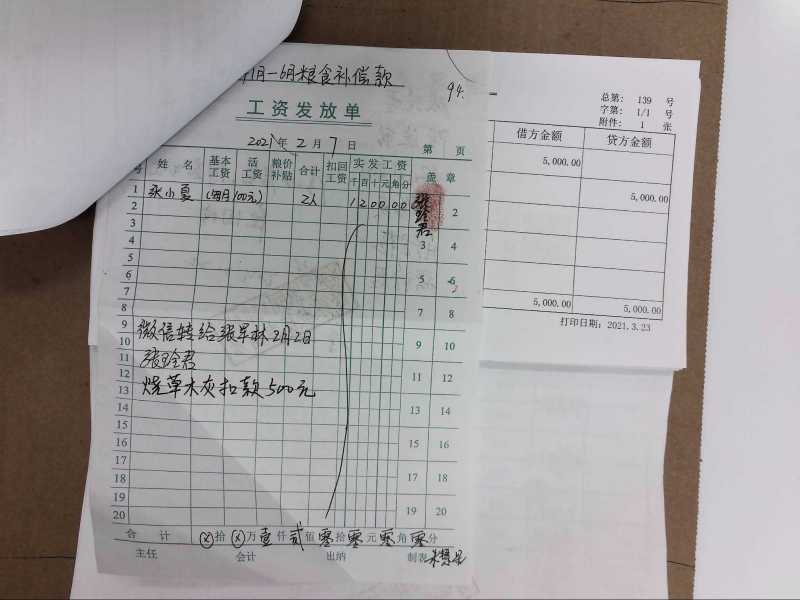 1月-6月粮食补偿款
94.
工资发放单
2021年2月7日
第 页
号 姓名 基本工资 活工资 粮价补贴 合计 扣回工资 实发工资 千百十元角分 盖章
1 张小夏 (每月100元) 2人 1 2 0 0 0 0 2
2
3 3 4
4
5 5 6
6
7 7 8
8
9 微信转给张早林2月2日 9 10
10
11 张玲君 11 12
12
13 烧草木灰扣款500元 13 14
14
15 15 16
16
17 17 18
18
19 19 20
20
合计 ⊗拾⊗万壹仟贰佰零拾零元零角零分
主任 会计 出纳 制表
总第: 139 号
字第: 1/1 号
附件: 1 张
借方金额 贷方金额
5,000.00
5,000.00
5,000.00 5,000.00
打印日期: 2021.3.23